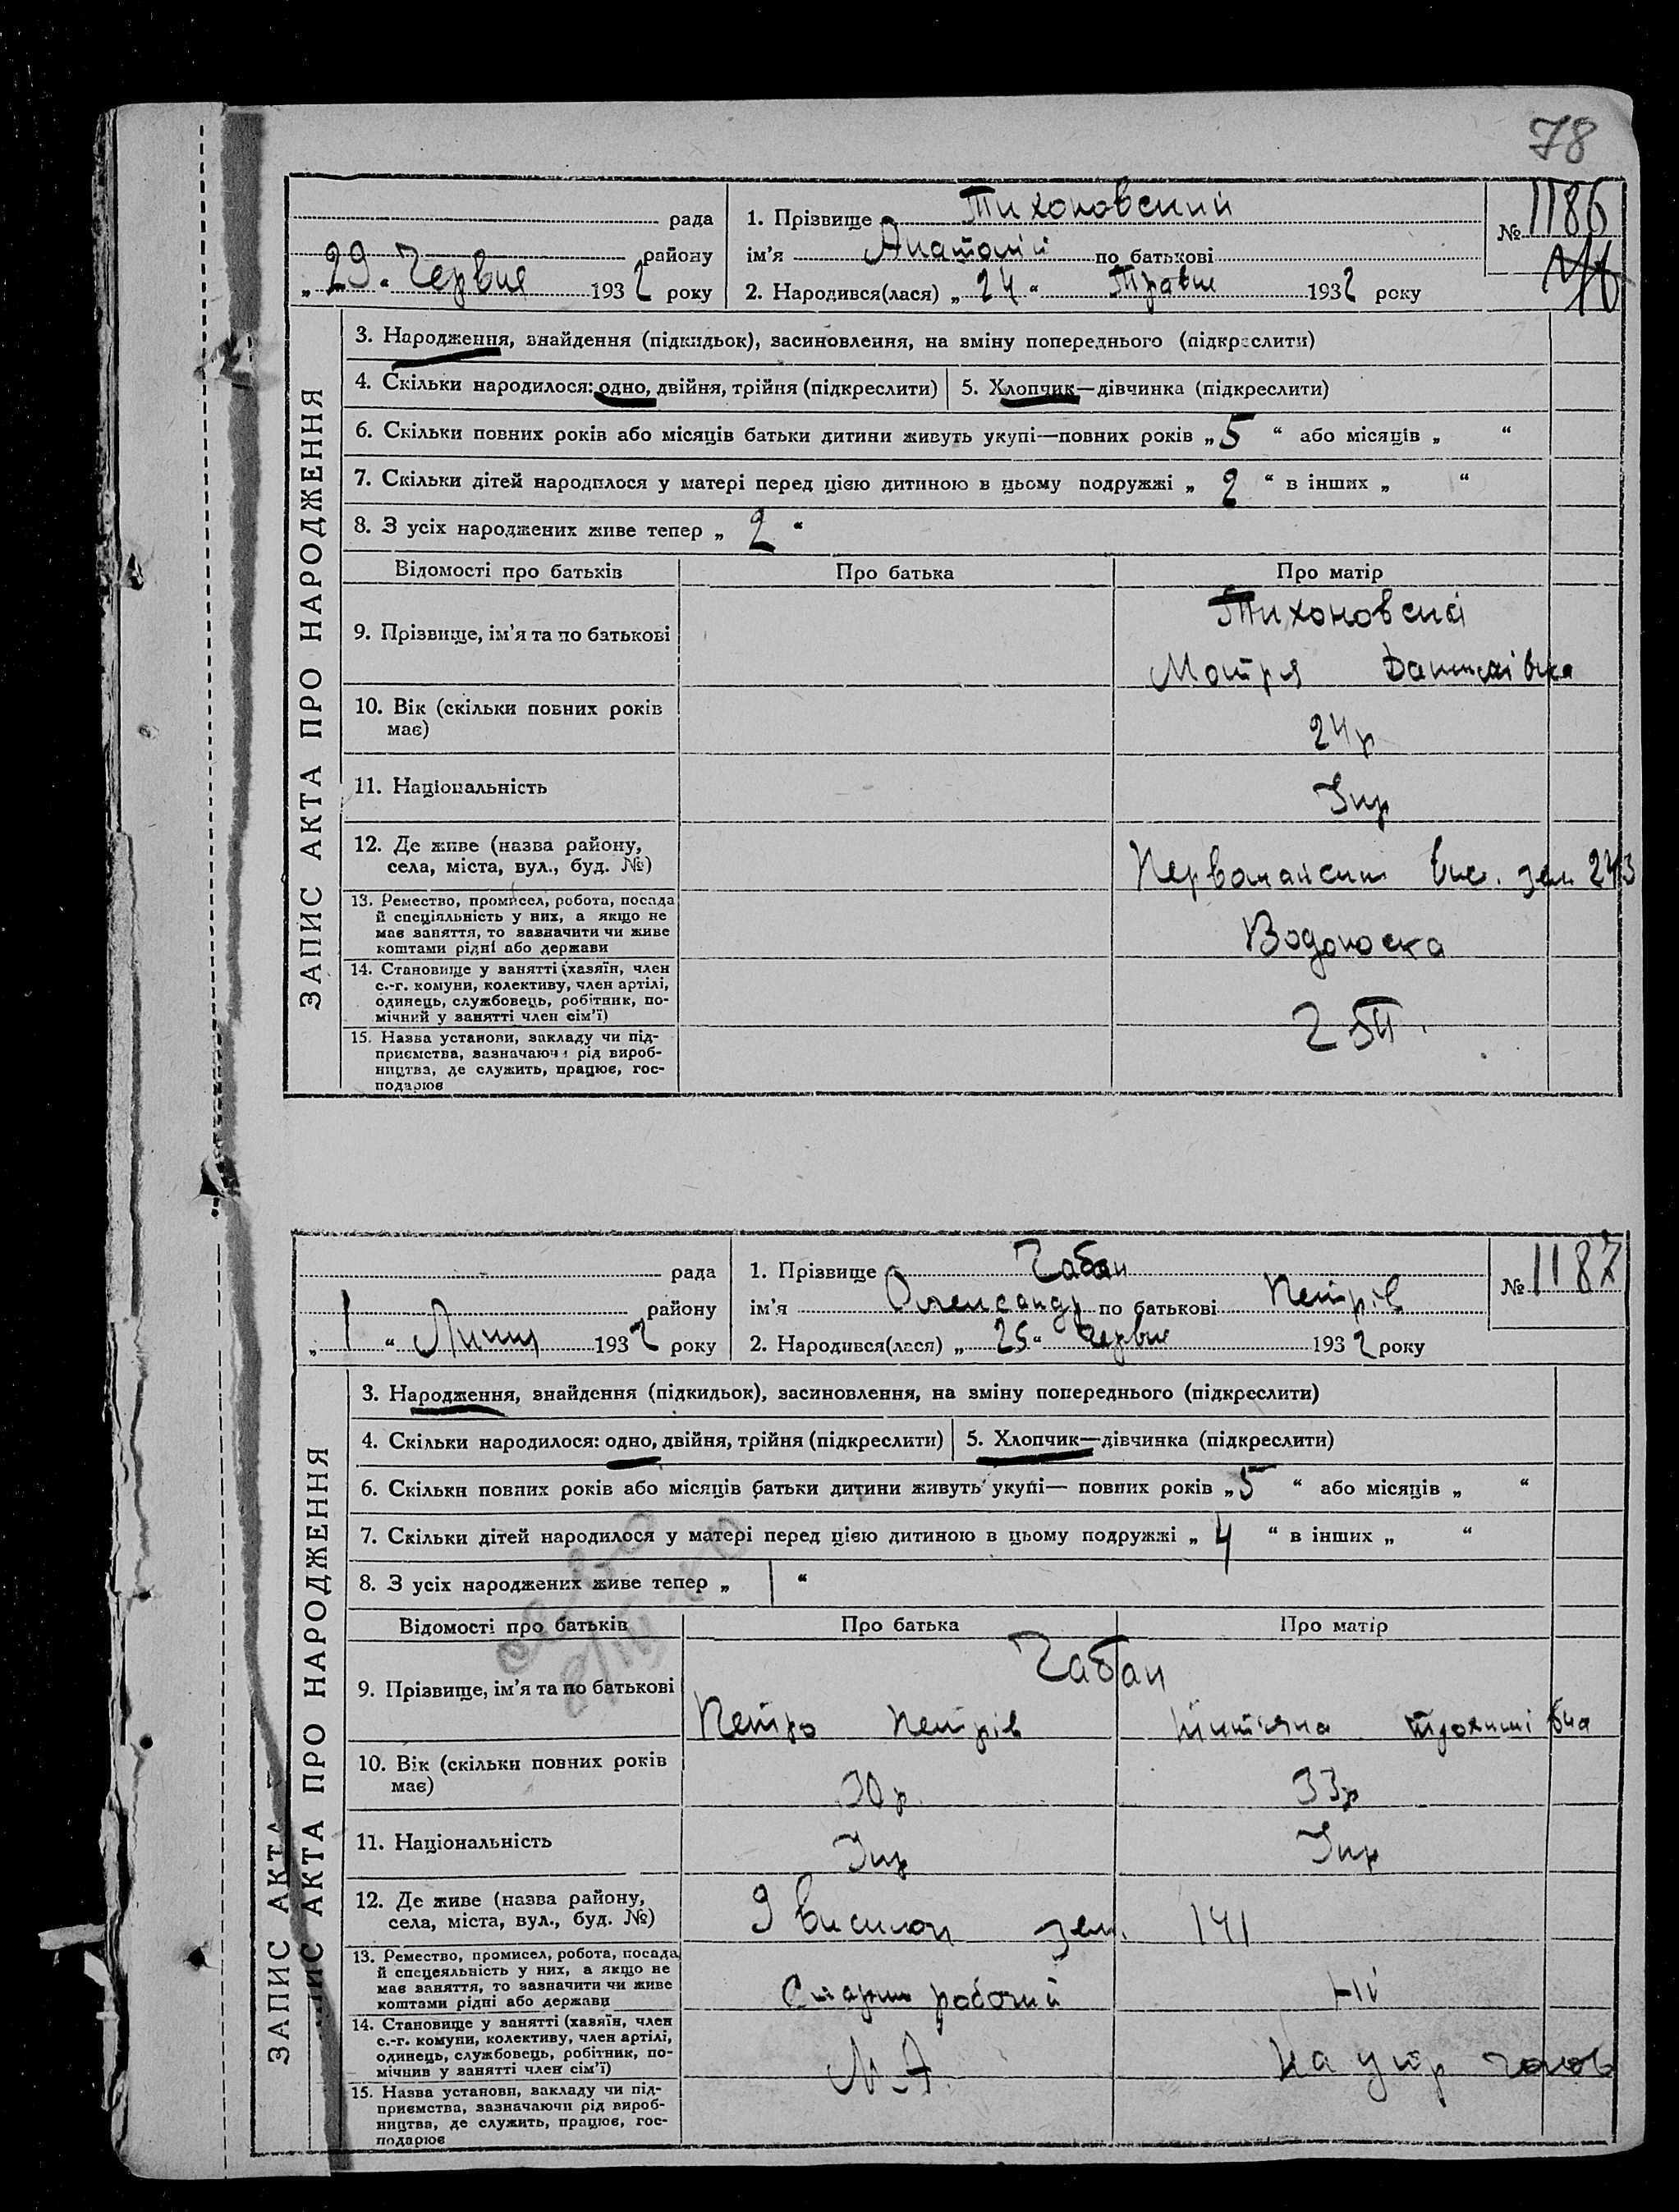 78
рада
району
„29“ Червня 1932 року
1. Прізвище Тихоновський
ім’я Анатолій по батькові
2. Народився(лася) „24“ Травня 1932 року
№ 1186
ЗАПИС АКТА ПРО НАРОДЖЕННЯ
3. Народження, знайдення (підкидьок), засиновлення, на зміну попереднього (підкреслити)
4. Скільки народилося: одно, двійня, трійня (підкреслити) 5. Хлопчик—дівчинка (підкреслити)
6. Скільки повних років або місяців батьки дитини живуть укупі—повних років „5“ або місяців „ “
7. Скільки дітей народилося у матері перед цією дитиною в цьому подружжі „2“ в інших „ “
8. З усіх народжених живе тепер „2“
Відомості про батьків Про батька Про матір
9. Прізвище, ім’я та по батькові
Тихоновська
Мотря Данилівна
10. Вік (скільки повних років
має)
24р
11. Національність
Укр
12. Де живе (назва району,
села, міста, вул., буд. №)
вис. зем 243
13. Ремество, промисел, робота, посада
й спеціяльність у них, а якщо не
має заняття, то зазначити чи живе
коштами рідні або держави
Водоноска
14. Становище у занятті (хазяїн, член
с.-г. комуни, колективу, член артілі,
одинець, службовець, робітник, по-
мічний у занятті член сім’ї)
15. Назва установи, закладу чи під-
приємства, зазначаючи рід вироб-
ництва, де служить, працює, гос-
подарює
рада
району
„1“ Липня 1932 року
1. Прізвище Чабан
ім’я Олександр по батькові Петрів
2. Народився(лася) „25“ Червня 1932 року
№ 1187
ЗАПИС АКТА ПРО НАРОДЖЕННЯ
ЗАПИС АКТА
3. Народження, знайдення (підкидьок), засиновлення, на зміну попереднього (підкреслити)
4. Скільки народилося: одно, двійня, трійня (підкреслити) 5. Хлопчик—дівчинка (підкреслити)
6. Скільки повних років або місяців батьки дитини живуть укупі— повних років „5“ або місяців „ “
7. Скільки дітей народилося у матері перед цією дитиною в цьому подружжі „4“ в інших „ “
8. З усіх народжених живе тепер „1“
Відомості про батьків Про батька Про матір
Чабан
9. Прізвище, ім’я та по батькові
Петро Петрів
10. Вік (скільки повних років
має)
30р 33р
11. Національність
Укр Укр
12. Де живе (назва району,
села, міста, вул., буд. №)
9 виселок зем. 141
13. Ремество, промисел, робота, посада
й спецеяльність у них, а якщо не
має заняття, то зазначити чи живе
коштами рідні або держави
Старш робочий
14. Становище у занятті (хазяїн, член
с.-г. комуни, колективу, член артілі,
одинець, службовець, робітник, по-
мічнив у занятті член сім’ї)
На утр чолов
15. Назва установи, закладу чи під-
приємства, зазначаючи рід вироб-
ництва, де служить, працює, гос-
подарює